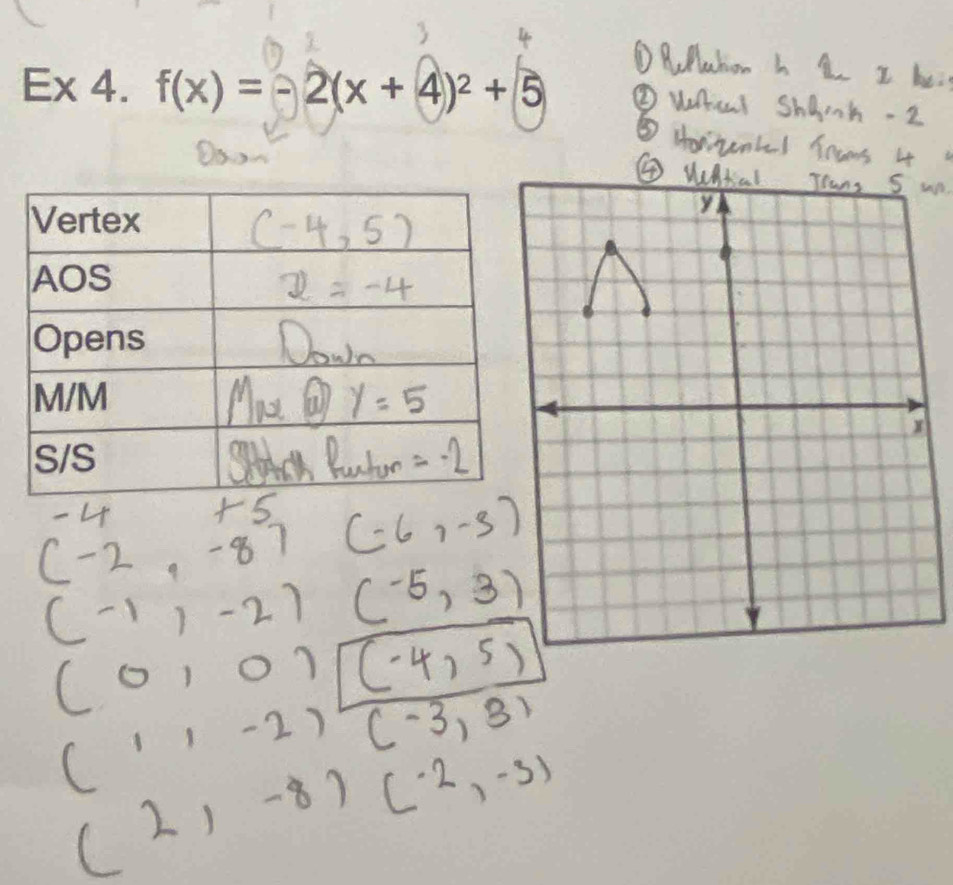 ① 2 3 4
Ex 4. f(x) = -2(x + 4)² + 5
Down
① Reflection in the x axis
② Vertical Shrink -2
③ Horizental Trans 4
④ Vertical Trans 5 un
Vertex (-4, 5)
AOS x = -4
Opens Down
M/M Max @ y = 5
S/S factor = -2
y
x
-4 +5
(-2, -8) (-6, -3)
(-1, -2) (-5, 3)
(0, 0) (-4, 5)
(1, -2) (-3, 3)
(2, -8) (-2, -3)